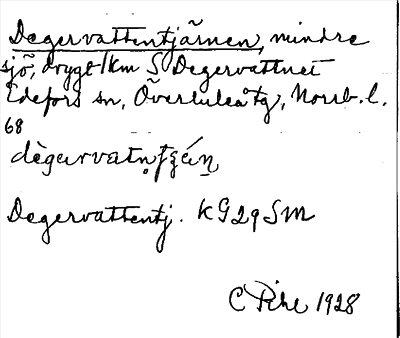 Degervattentjärnen, mindre
sjö, drygt 1 km S Degervattnet
Edefors sn, Överluleå tg, Norrb. l.
68
dègərvatn̥
Degervattentj. KG 29 SM
C Pihl 1928